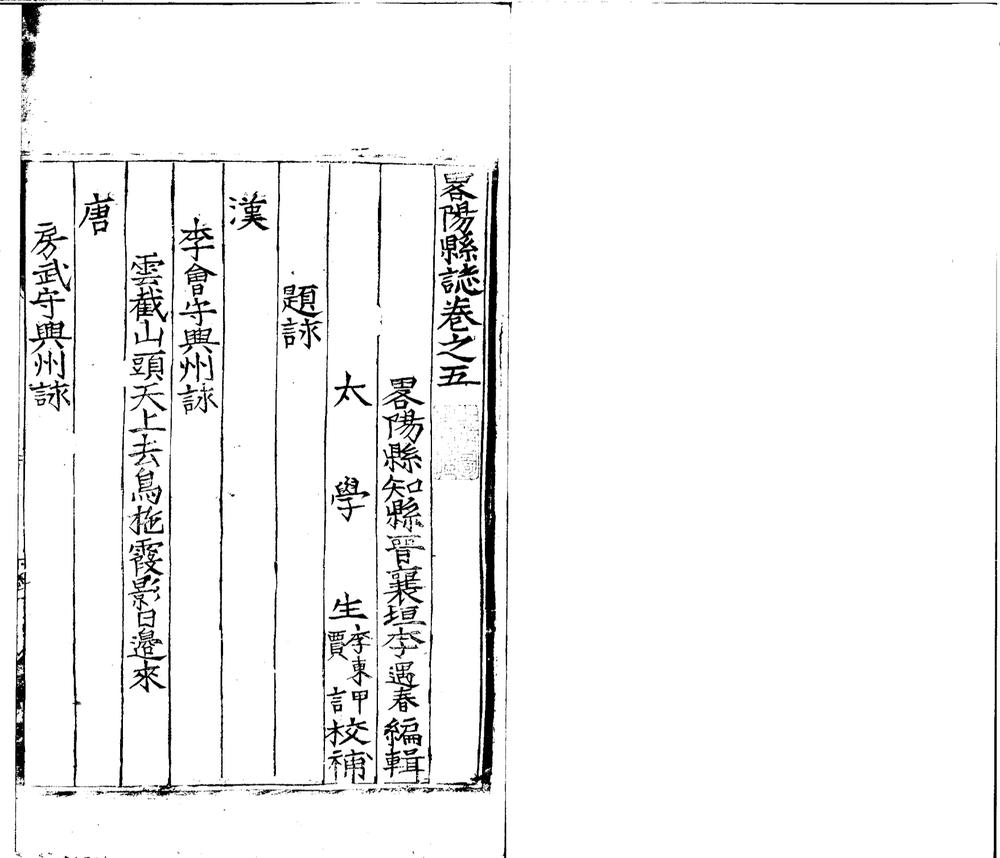 畧陽縣誌卷之五
畧陽縣知縣晉襄垣李遇春編輯
太學生李東甲賈言校補
題詠
漢
李會守興州詠
雲截山頭天上去鳥拖霞影日邉來
唐
房武守興州詠